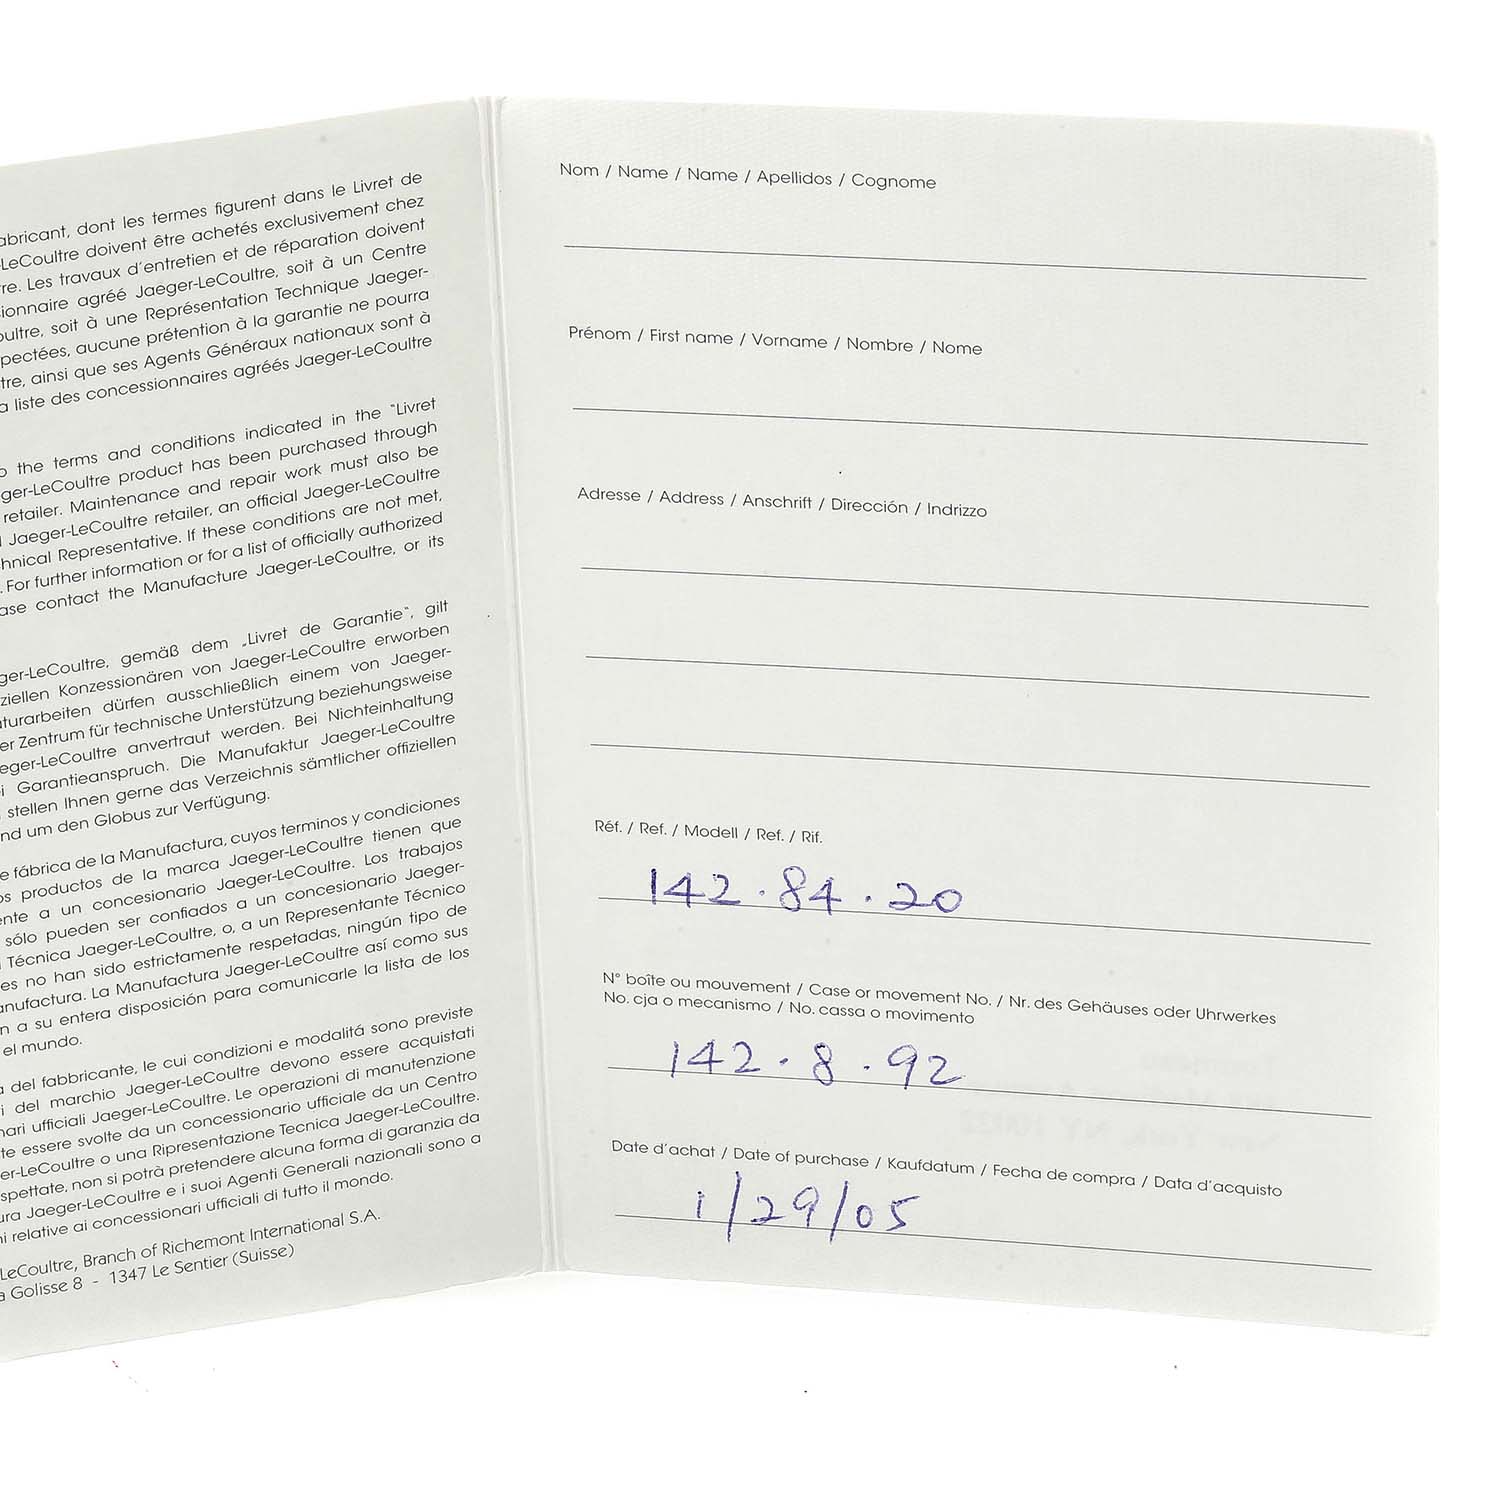 abricant, dont les termes figurent dans le Livret de
LeCoultre doivent être achetés exclusivement chez
re. Les travaux d'entretien et de réparation doivent
ionnaire agréé Jaeger-LeCoultre, soit à un Centre
oultre, soit à une Représentation Technique Jaeger-
pectées, aucune prétention à la garantie ne pourra
tre, ainsi que ses Agents Généraux nationaux sont à
a liste des concessionnaires agréés Jaeger-LeCoultre
o the terms and conditions indicated in the "Livret
ger-LeCoultre product has been purchased through
retailer. Maintenance and repair work must also be
l Jaeger-LeCoultre retailer, an official Jaeger-LeCoultre
hnical Representative. If these conditions are not met,
. For further information or for a list of officially authorized
ase contact the Manufacture Jaeger-LeCoultre, or its
ger-LeCoultre, gemäß dem „Livret de Garantie", gilt
ziellen Konzessionären von Jaeger-LeCoultre erworben
aturarbeiten dürfen ausschließlich einem von Jaeger-
er Zentrum für technische Unterstützung beziehungsweise
eger-LeCoultre anvertraut werden. Bei Nichteinhaltung
i Garantieanspruch. Die Manufaktur Jaeger-LeCoultre
stellen Ihnen gerne das Verzeichnis sämtlicher offiziellen
nd um den Globus zur Verfügung.
e fábrica de la Manufactura, cuyos terminos y condiciones
os productos de la marca Jaeger-LeCoultre tienen que
nte a un concesionario Jaeger-LeCoultre. Los trabajos
sólo pueden ser confiados a un concesionario Jaeger-
l Técnica Jaeger-LeCoultre, o, a un Representante Técnico
es no han sido estrictamente respetadas, ningún tipo de
anufactura. La Manufactura Jaeger-LeCoultre así como sus
n a su entera disposición para comunicarle la lista de los
el mundo.
a del fabbricante, le cui condizioni e modalitá sono previste
i del marchio Jaeger-LeCoultre devono essere acquistati
nari ufficiali Jaeger-LeCoultre. Le operazioni di manutenzione
te essere svolte da un concessionario ufficiale da un Centro
er-LeCoultre o una Ripresentazione Tecnica Jaeger-LeCoultre.
spettate, non si potrà pretendere alcuna forma di garanzia da
ura Jaeger-LeCoultre e i suoi Agenti Generali nazionali sono a
ni relative ai concessionari ufficiali di tutto il mondo.
LeCoultre, Branch of Richemont International S.A.
a Golisse 8 - 1347 Le Sentier (Suisse)
Nom / Name / Name / Apellidos / Cognome
Prénom / First name / Vorname / Nombre / Nome
Adresse / Address / Anschrift / Dirección / Indrizzo
Réf. / Ref. / Modell / Ref. / Rif.
142.84.20
N° boîte ou mouvement / Case or movement No. / Nr. des Gehäuses oder Uhrwerkes
No. cja o mecanismo / No. cassa o movimento
142.8.92
Date d'achat / Date of purchase / Kaufdatum / Fecha de compra / Data d'acquisto
1/29/05